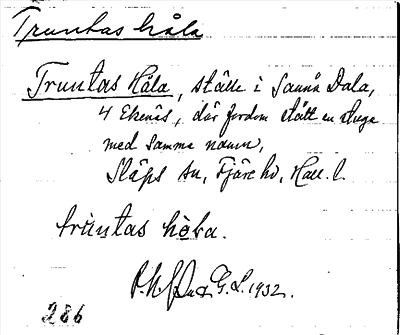 Truntas håla
Truntas Håla, ställe i Sanna Dala,
4 Ekenäs, där fordom stått en stuga
med samma namn,
Släps sn, Fjäre hd, Hall. l.
truntas hòla.
G. L. 1932.
286